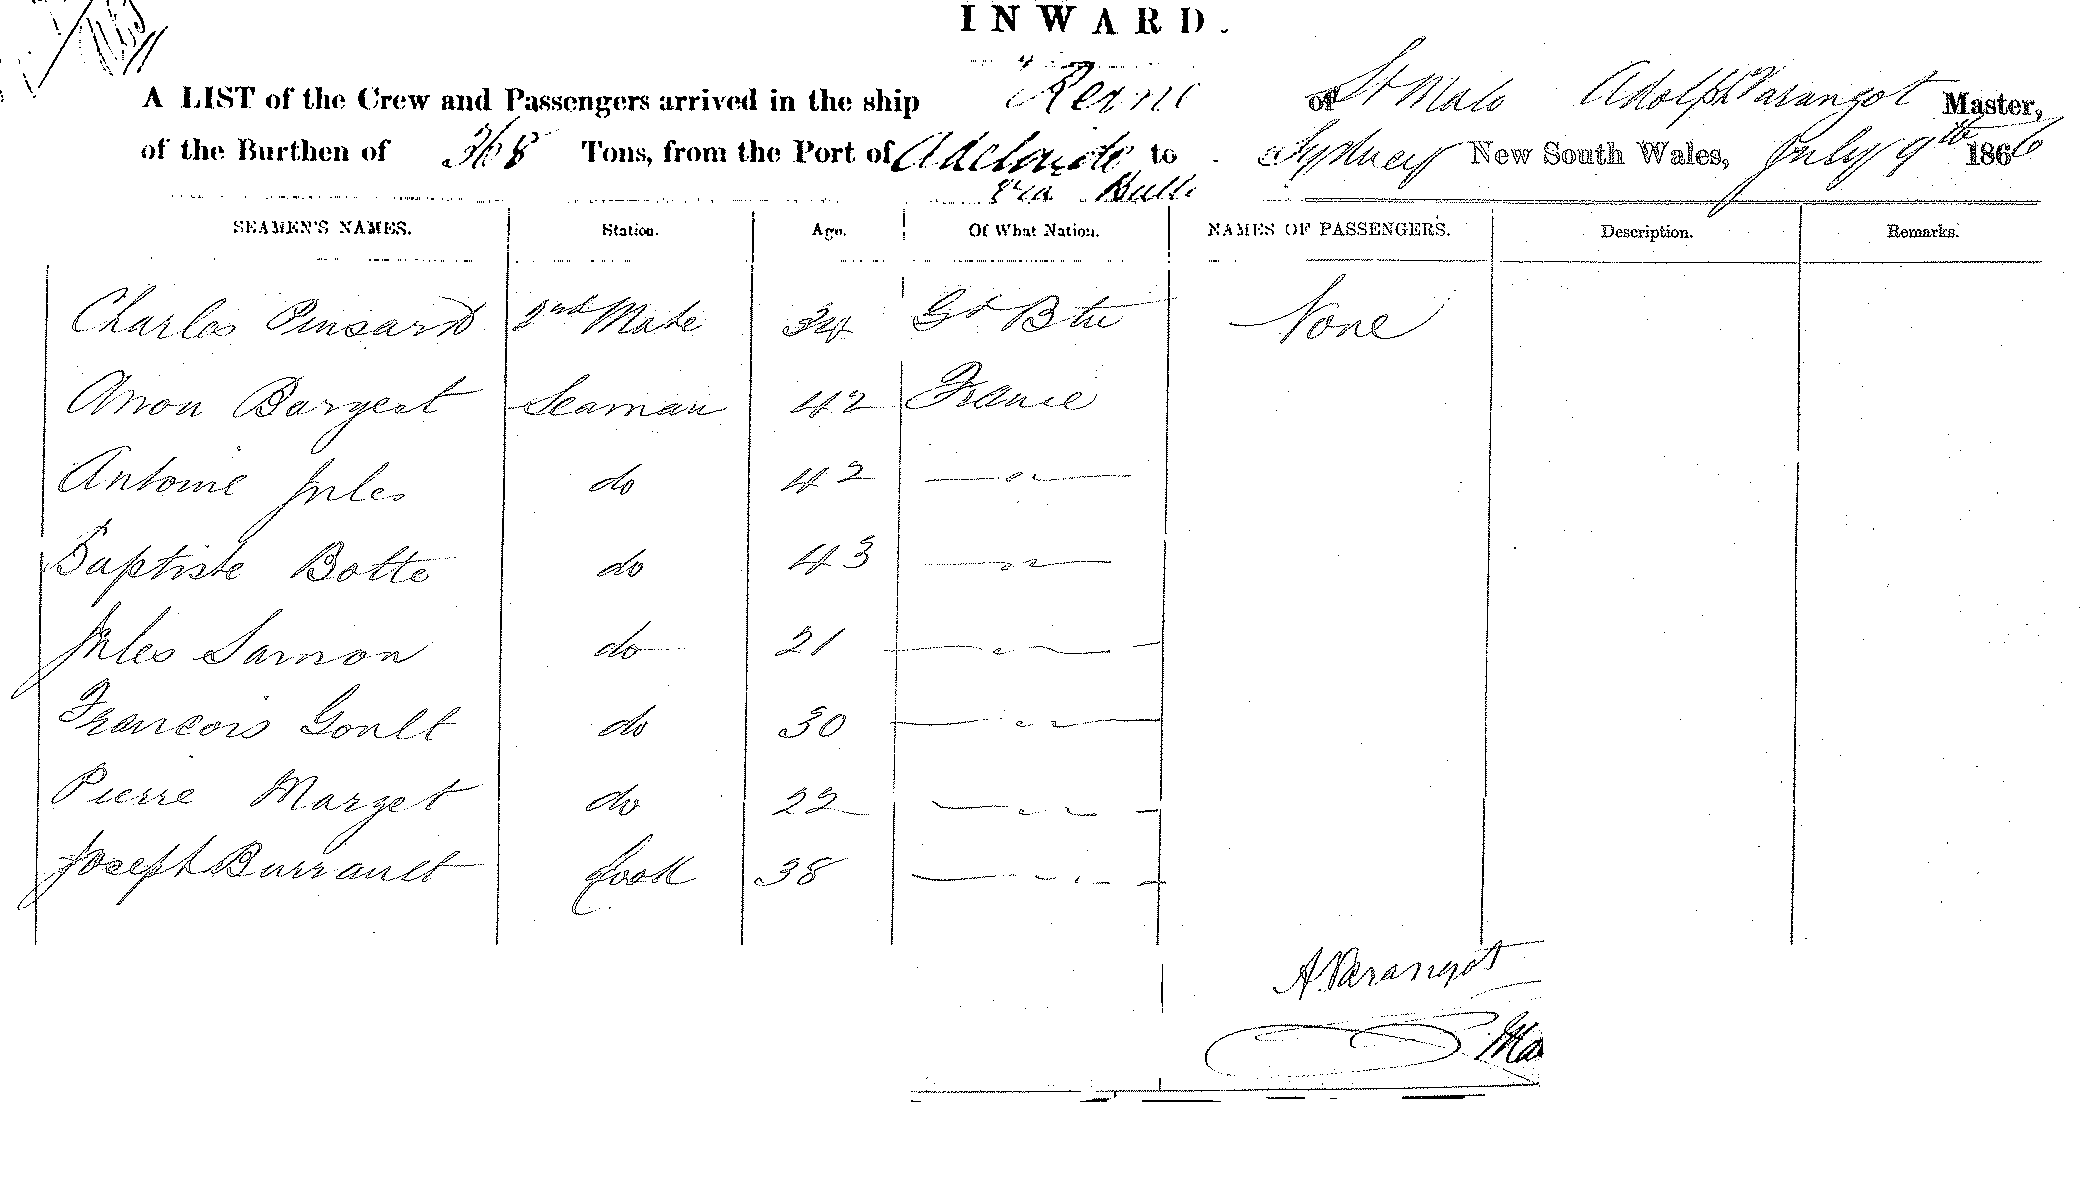 INWARD.
A LIST of the Crew and Passengers arrived in the ship of St Malo Adolph Varangot Master,
of the Burthen of 368 Tons, from the Port of Adelaide to Sydney New South Wales, July 9th 1866
via Bulli
SEAMEN'S NAMES. Station. Age. Of What Nation. NAMES OF PASSENGERS. Description. Remarks.
Charles Pinsard 2nd Mate 34 Gt Btn None
Amon Bargeat Seaman 42 France
Antoine Jules do 42 —"—
Baptiste Botte do 43 —"—
Jules Samon do 21 —"—
Francois Goult do 30 —"—
Pierre Marzet do 22 —"—
Joseph Burrault Cook 38 —"—
A. Varangot
Ma